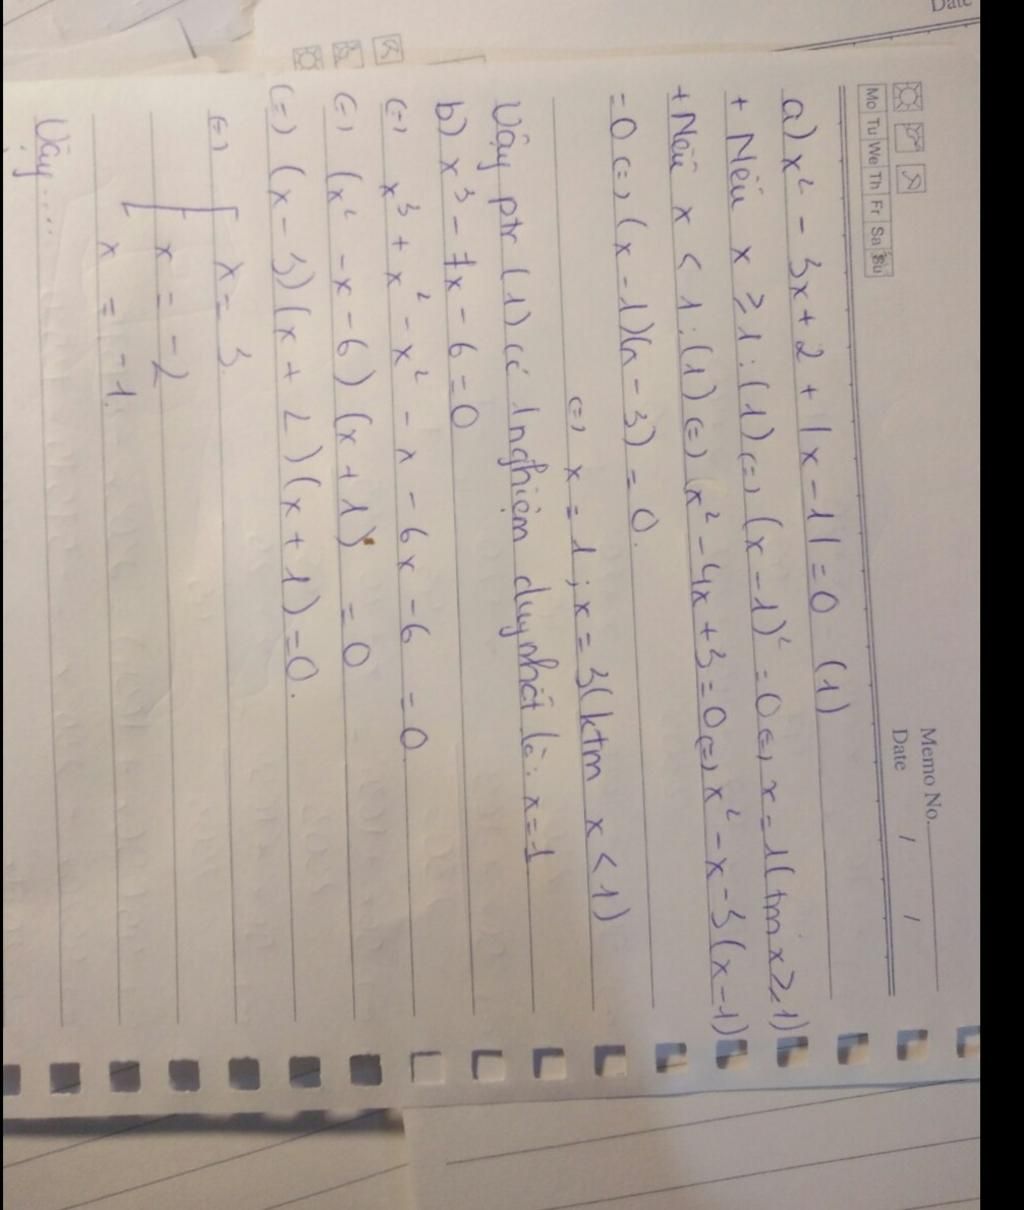 Date
Memo No.
Mo Tu We Th Fr Sa Su
Date / /
a) x² - 3x + 2 + |x - 1| = 0 (1)
+ Nếu x ≥ 1 : (1) (=) (x - 1)² = 0 (=) x = 1 (tm x ≥ 1)
+ Nếu x < 1 : (1) (=) x² - 4x + 3 = 0 (=) x² - x - 3(x - 1)
= 0 (=) (x - 1)(x - 3) = 0.
(=) x = 1 ; x = 3 (ktm x < 1)
Vậy ptr (1) có 1 nghiệm duy nhất là : x = 1
b) x³ - 7x - 6 = 0
(=) x³ + x² - x² - x - 6x - 6 = 0
(=) (x² - x - 6) (x + 1) = 0
(=) (x - 3)(x + 2)(x + 1) = 0.
(=) x = 3
x = -2
x = -1.
Vậy....